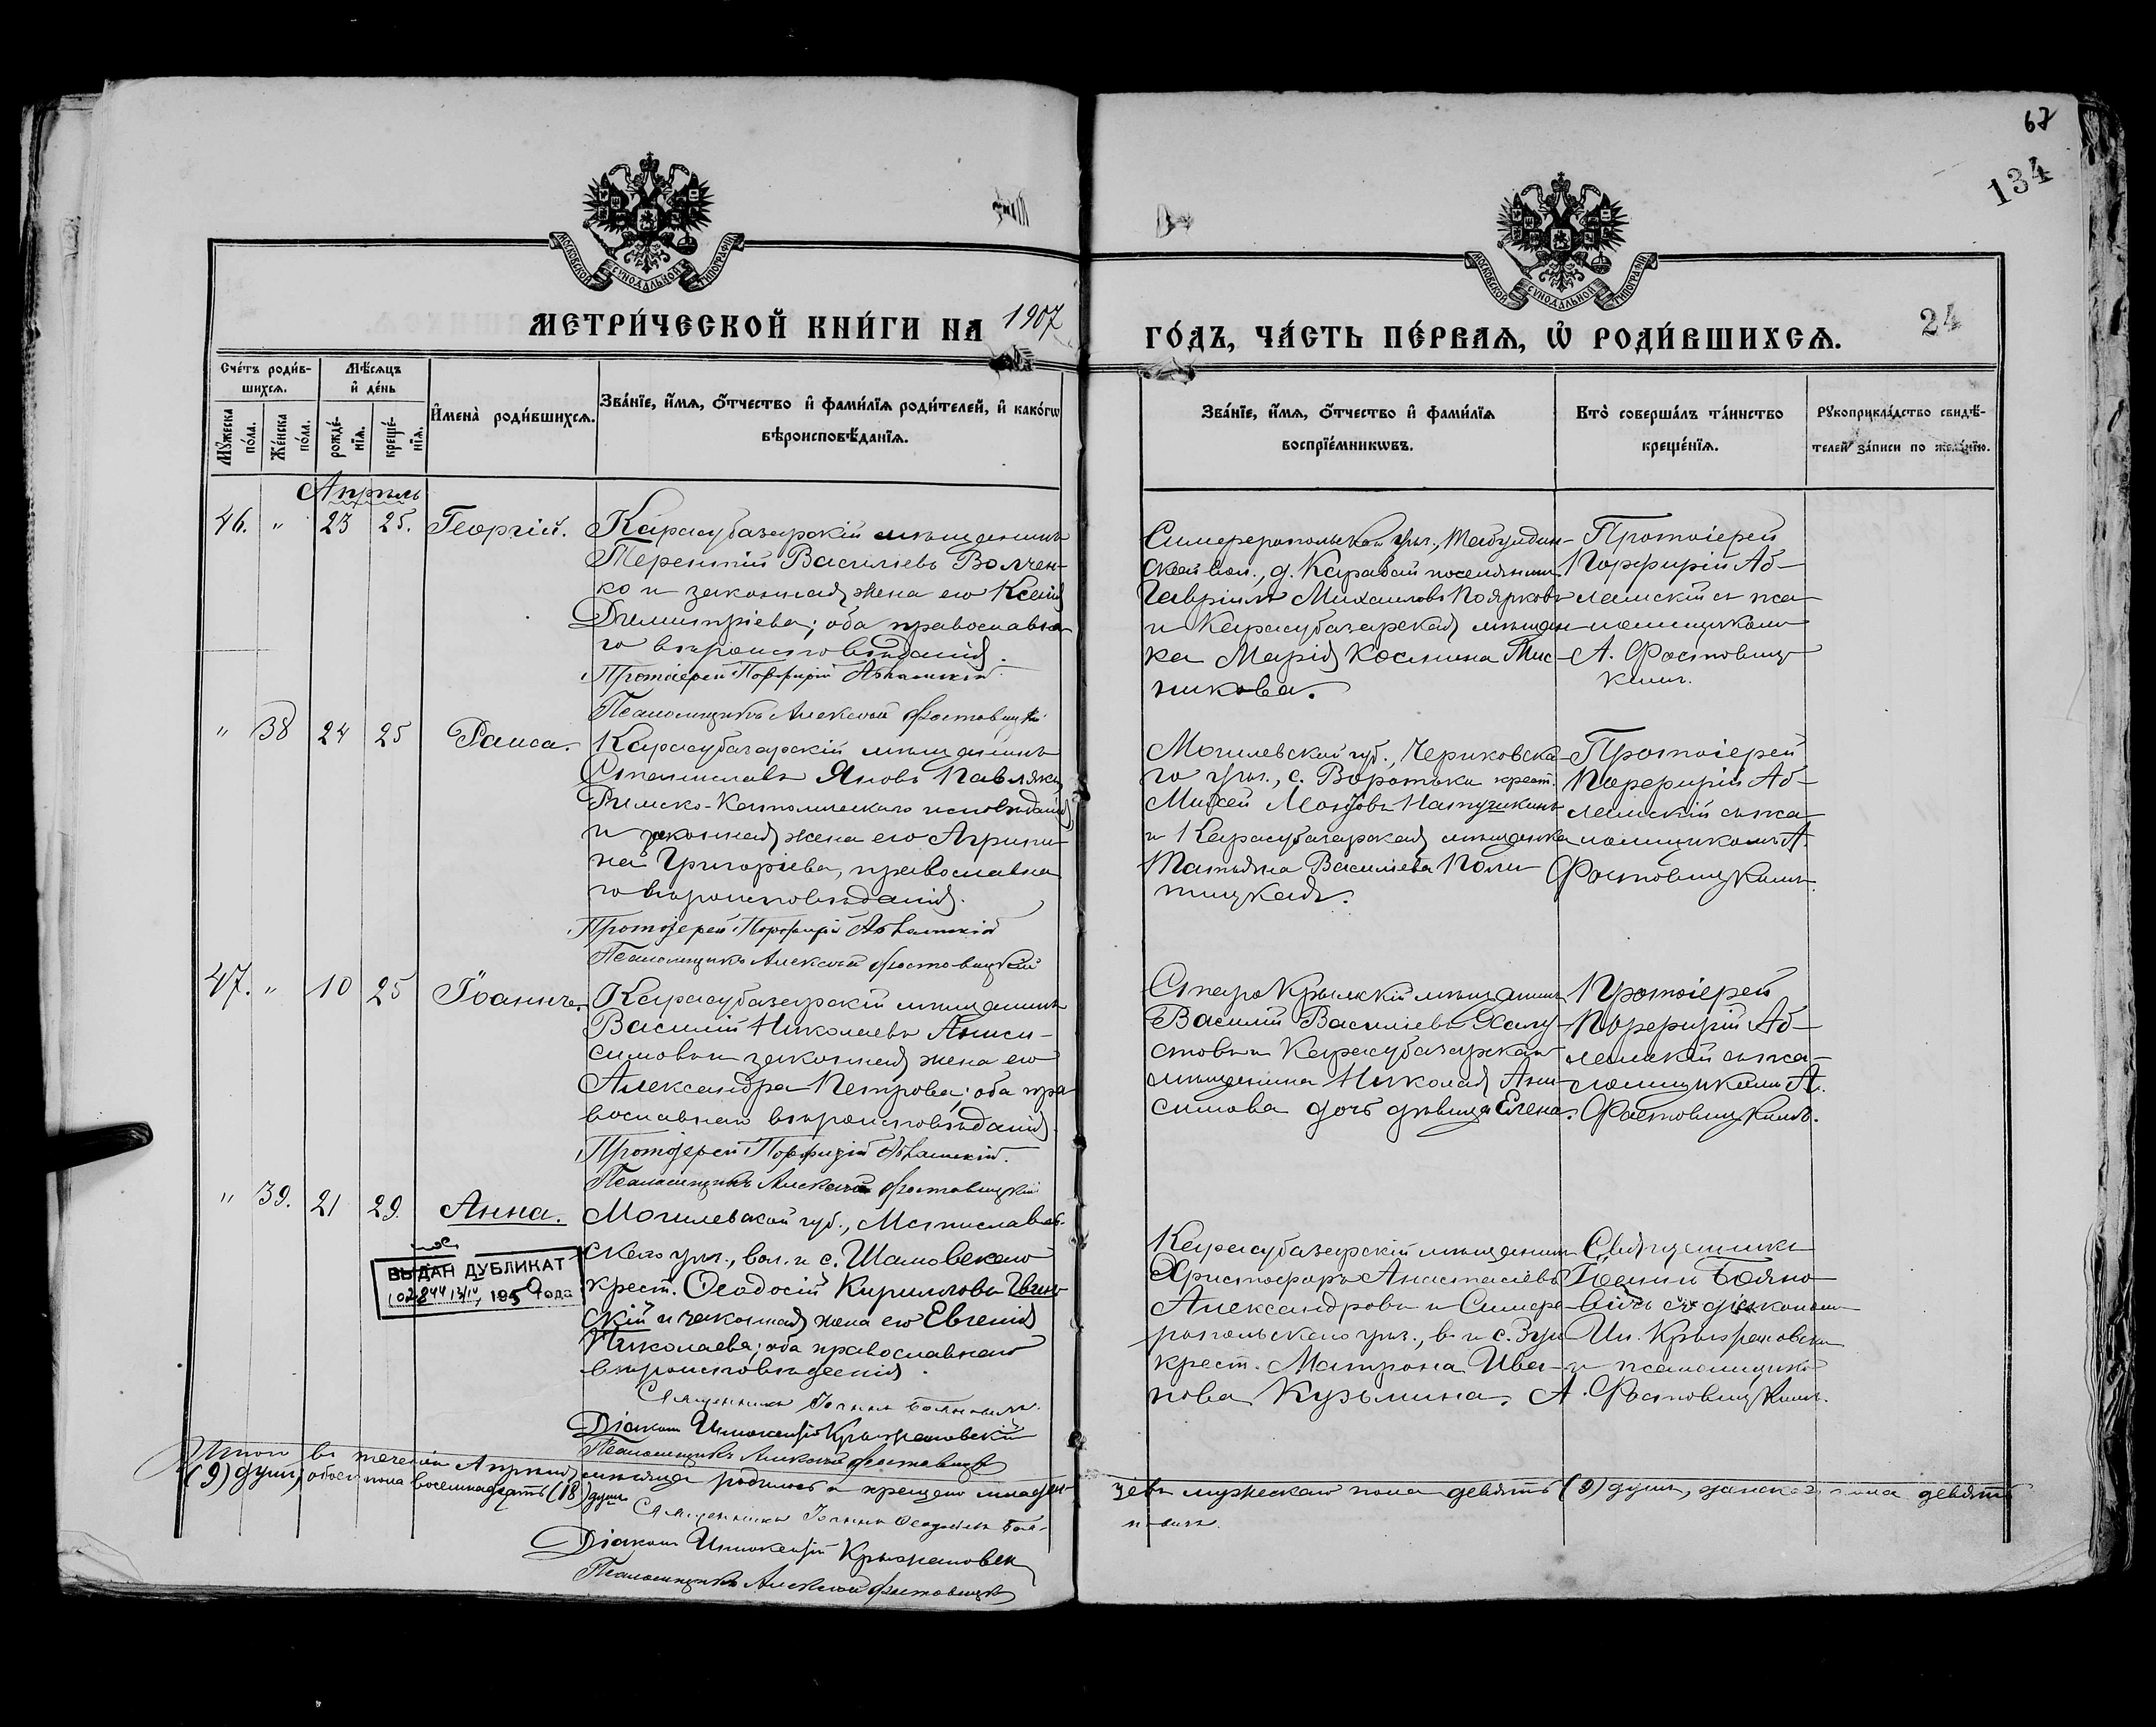 67
134
МОСКОВСКОЙ СѴНОДАЛЬНОЙ ТИПОГРАФІИ
МОСКОВСКОЙ СѴНОДАЛЬНОЙ ТИПОГРАФІИ
МЕТРИ́ЧЕСКОЙ КНИ́ГИ НА 1907
ГО́ДЪ, ЧА́СТЬ ПЕ́РВАѦ, Ѡ РОДИ́ВШИХСѦ.
24
Сче́тъ роди́в-
шихсѧ.
Мѣ́сѧцъ
и҆ де́нь
Мꙋ́жеска
по́ла.
Же́нска
по́ла.
рожде́-
нїѧ.
креще́-
нїѧ.
И҆мена̀ роди́вшихсѧ.
Зва́нїе, и҆́мѧ, ѻ҆́тчество и҆ фами́лїѧ роди́телей, и҆ како́гѡ
вѣроисповѣ́данїѧ.
Зва́нїе, и҆́мѧ, ѻ҆́тчество и҆ фами́лїѧ
воспрїе́мникѡвъ.
Кто̀ соверша́лъ та́инство
креще́нїѧ.
Рꙋкоприкла́дство свидѣ́-
телей за́писи по жела́нїю.
Апрѣль
46. " 23 25. Георгій.
Карасубазарскій мѣщанинъ
Терентій Васильевъ Волчен-
ко и законная жена его Ксенія
Димитріева; оба православна-
го вѣроисповѣданія.
Протоіерей Порфирій
Псаломщикъ Алексѣй Фостовицкій
Симферопольскаго уѣз.,
ской вол., д. Каравай поселянинъ
Гавріилъ Михаиловъ Поярковъ
и Карасубазарская мѣщан-
ка Марія Космина
никова.
Протоіерей
Порфирій Аб-
ламскій съ пса-
ломщикомъ
А. Фостовиц-
кимъ.
" 38 24 25 Раиса.
Карасубазарскій мѣщанинъ
Станиславъ Яновъ
Римско-Католическаго исповѣданія
и законная жена его Агрипи-
на Григоріева, православна-
го вѣроисповѣданія.
Протоіерей Порфирій
Псаломщикъ Алексѣй Фостовицкій
Могилевской губ., Чериковска-
го уѣз., с. крест.
и Карасубазарская мѣщанка
Татьяна Васильева Поли-
тицкая.
Протоіерей
Порфирій Аб-
ламскій съ пса-
ломщикомъ А.
Фостовицкимъ.
47. " 10 25 Іоаннъ.
Карасубазарскій мѣщанинъ
Василій Николаевъ Аниси-
мовъ и законная жена его
Александра Петрова; оба пра-
вославнаго вѣроисповѣданія.
Протоіерей Порфирій
Псаломщикъ Алексѣй Фостовицкій
СтароКрымскій мѣщанинъ
Василій Васильевъ
стовъ и Карасубазарскаго
мѣщанина Николая Ани-
симова дочь дѣвица Елена.
Протоіерей
Порфирій Аб-
ламскій съ пса-
ломщикомъ А.
Фостовицкимъ.
" 39. 21 29 Анна.
ВЫДАН ДУБЛИКАТ
1950 года
Могилевской губ., Мстиславль-
скаго уѣз., вол. и с. Шамовскаго
крест. Ѳеодосій Кирилловъ
скій и законная жена его Евгенія
Николаева; оба православнаго
вѣроисповѣданія.
Священникъ Іоаннъ Бояновичъ.
Діаконъ Иннокентій Крыжановскій
Псаломщикъ Алексѣй Фостовицкій
Карасубазарскій мѣщанинъ
Христофоръ Анастасіевъ
Александровъ и Симфе-
ропольскаго уѣз., в. и с. Зуи
крест. Матрона Ива-
нова Кузьмина.
Священникъ
Іоаннъ Бояно-
вичъ съ діакономъ
Ин. Крыжановскимъ
и псаломщикомъ
А. Фостовицкимъ.
Итого въ теченіи Апрѣля мѣсяца родилось и крещено младен-
цевъ мужескаго пола девять (9) душъ, женскаго пола девять
(9) душъ, обоего пола восемнадцать (18) душъ
Священникъ Іоаннъ Боя-
новичъ.
Діаконъ Иннокентій Крыжановскій
Псаломщикъ Алексѣй Фостовицкій